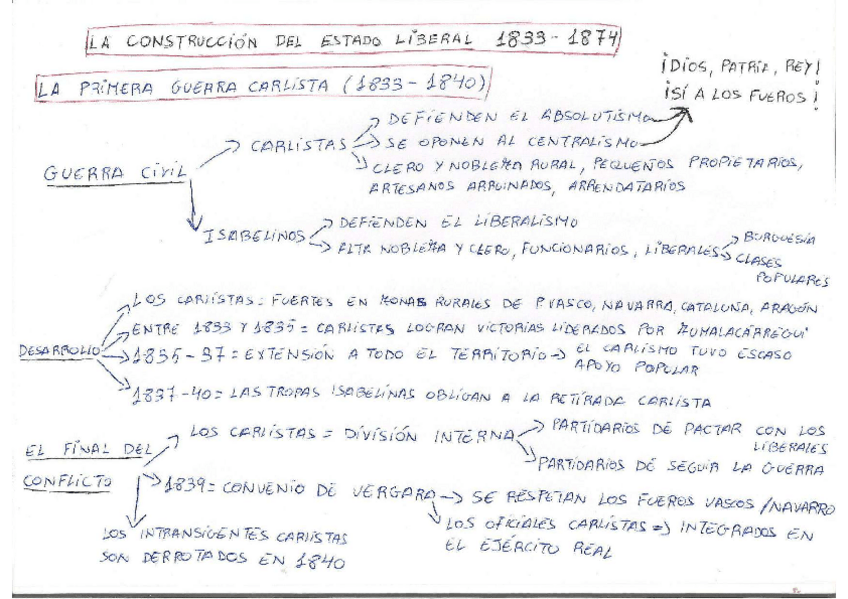 LA CONSTRUCCIÓN DEL ESTADO LIBERAL 1833-1874
LA PRIMERA GUERRA CARLISTA (1833-1840)
¡DIOS, PATRIA, REY!
¡SÍ A LOS FUEROS!
GUERRA CIVIL
CARLISTAS
DEFIENDEN EL ABSOLUTISMO
SE OPONEN AL CENTRALISMO
CLERO Y NOBLEZA RURAL, PEQUEÑOS PROPIETARIOS,
ARTESANOS ARRUINADOS, ARRENDATARIOS
ISABELINOS
DEFIENDEN EL LIBERALISMO
ALTA NOBLEZA Y CLERO, FUNCIONARIOS, LIBERALES
BURGUESÍA
CLASES
POPULARES
DESARROLLO
LOS CARLISTAS = FUERTES EN ZONAS RURALES DE P.VASCO, NAVARRA, CATALUÑA, ARAGÓN
ENTRE 1833 Y 1835 = CARLISTAS LOGRAN VICTORIAS LIDERADOS POR ZUMALACÁRREGUI
1835-37 = EXTENSIÓN A TODO EL TERRITORIO → EL CARLISMO TUVO ESCASO
APOYO POPULAR
1837-40 = LAS TROPAS ISABELINAS OBLIGAN A LA RETIRADA CARLISTA
EL FINAL DEL
CONFLICTO
LOS CARLISTAS = DIVISIÓN INTERNA
PARTIDARIOS DE PACTAR CON LOS
LIBERALES
PARTIDARIOS DE SEGUIR LA GUERRA
1839 = CONVENIO DE VERGARA → SE RESPETAN LOS FUEROS VASCOS/NAVARRO
LOS OFICIALES CARLISTAS => INTEGRADOS EN
EL EJÉRCITO REAL
LOS INTRANSIGENTES CARLISTAS
SON DERROTADOS EN 1840